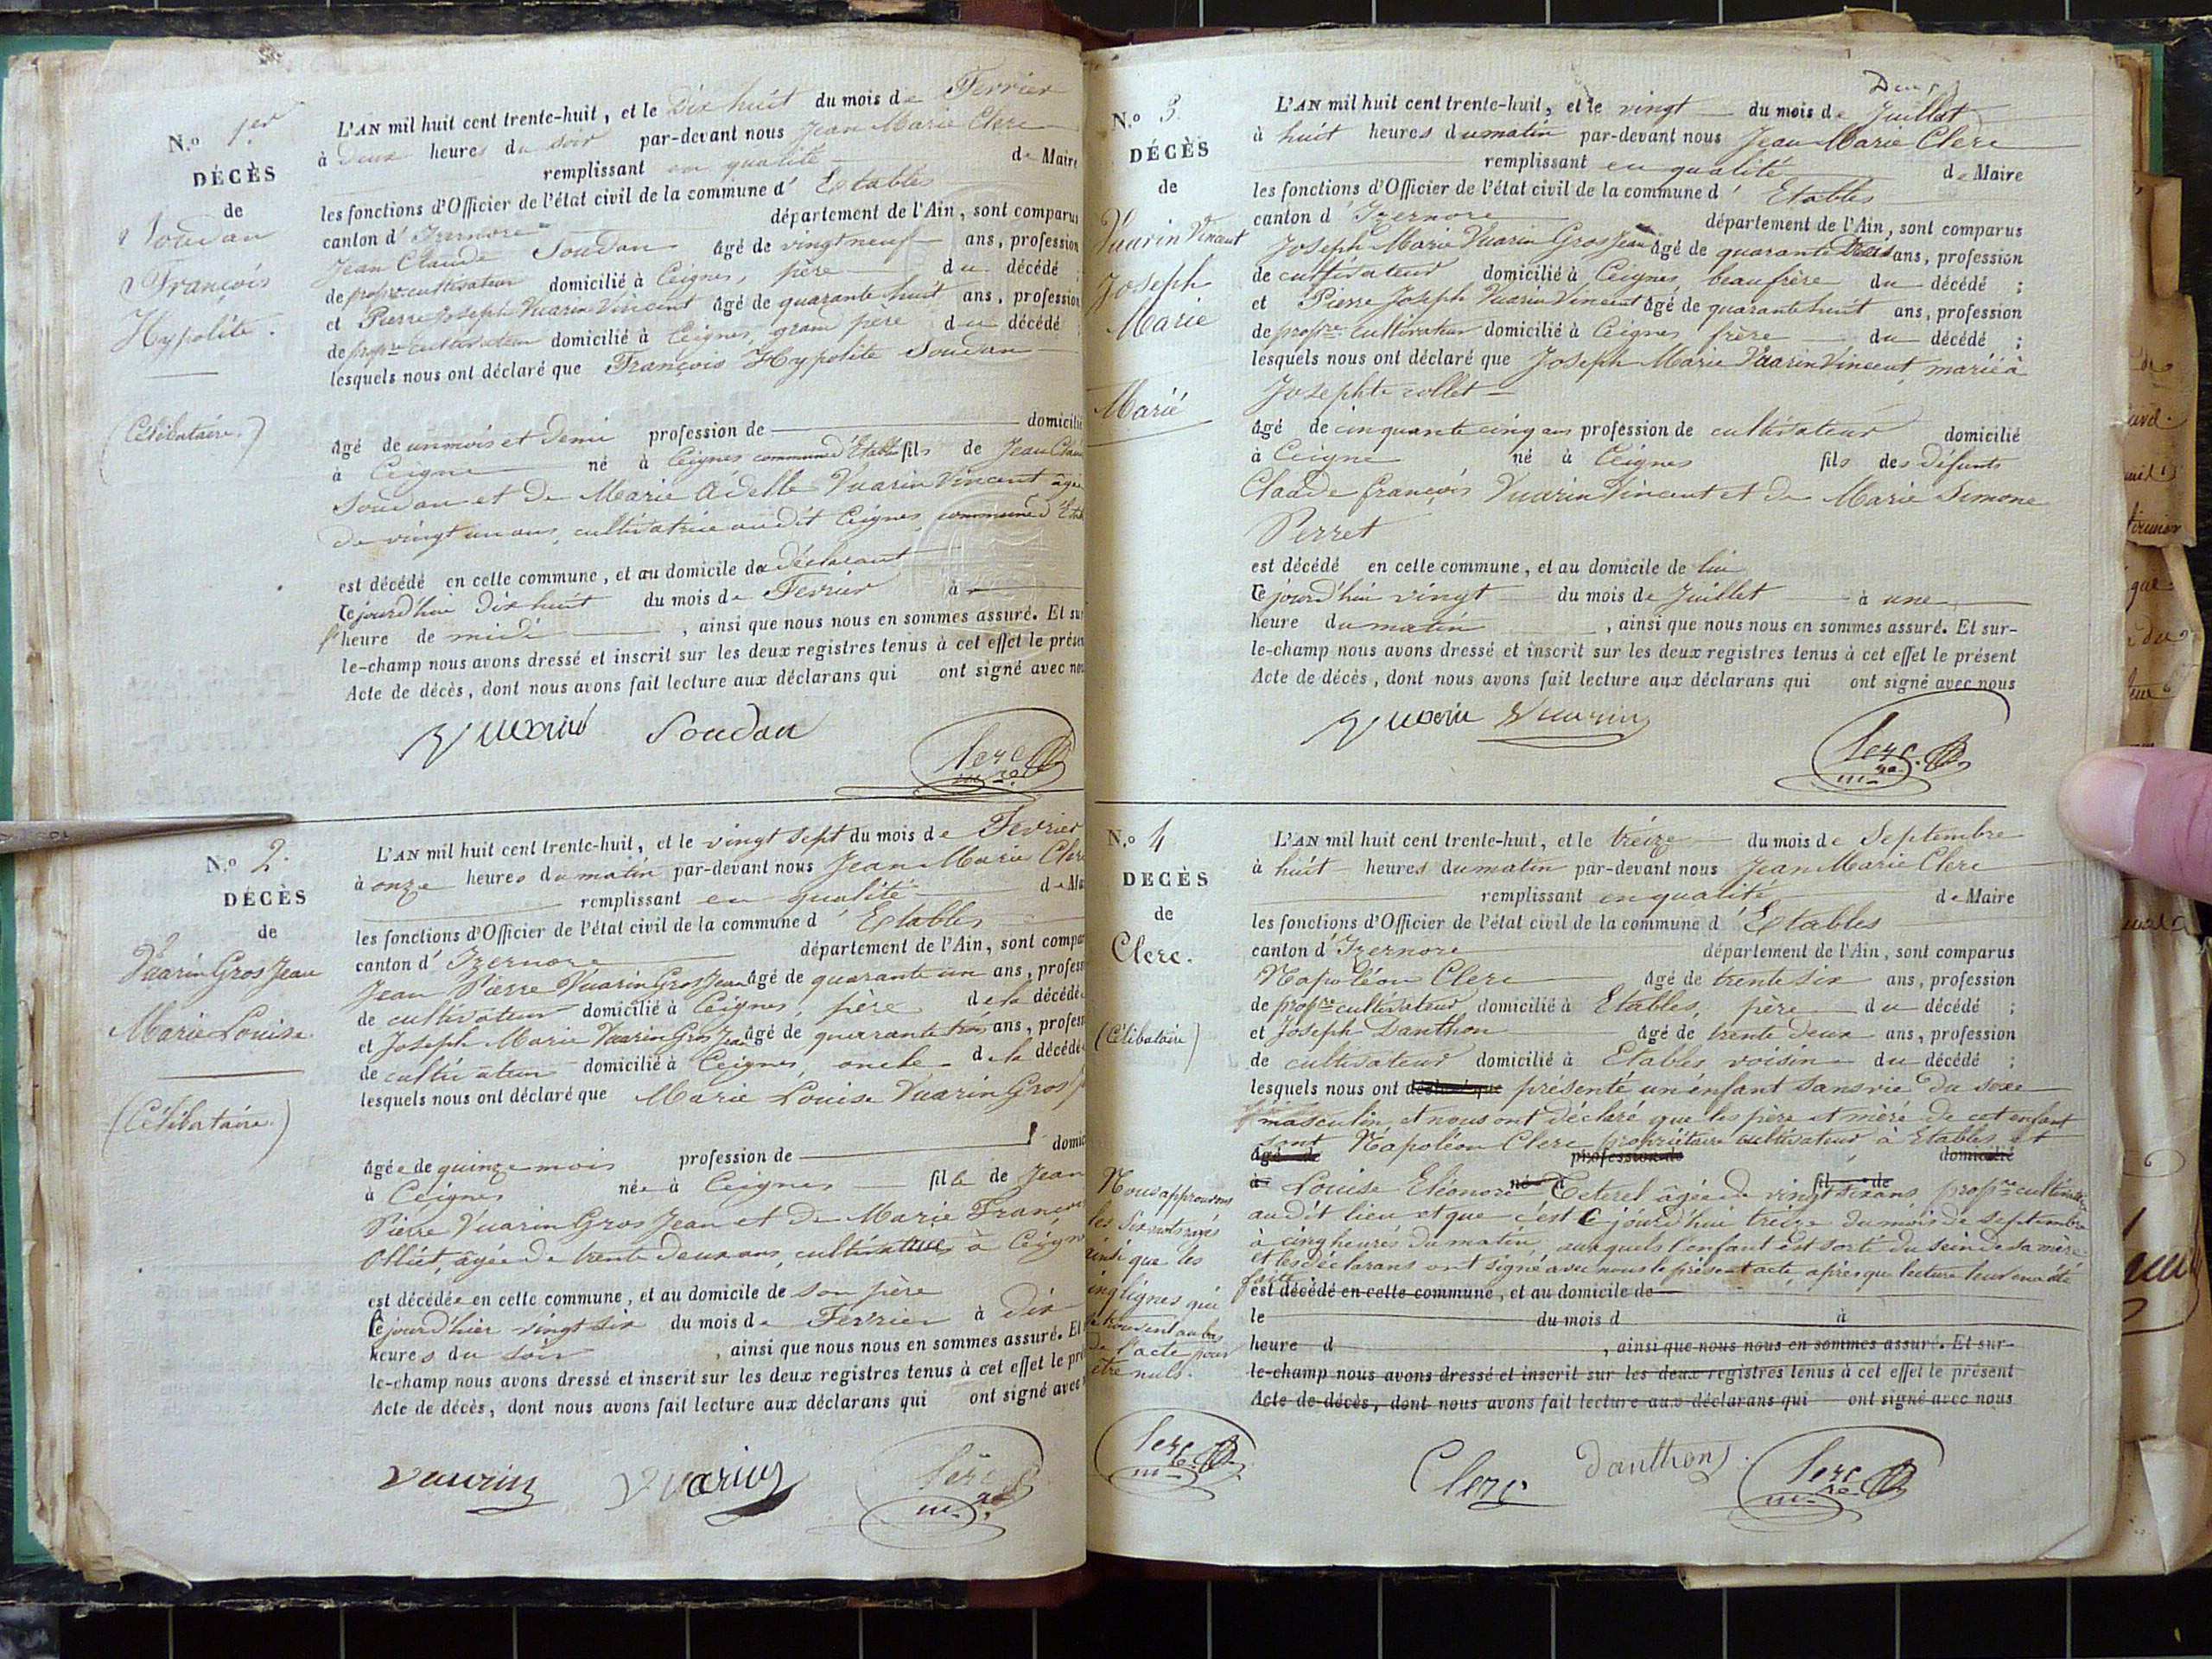 N.o 1er
DÉCÈS
de
Soudan
François
Hypolite.
(Célibataire.)
L'AN mil huit cent trente-huit, et le Dix huit du mois de Fevrier
à Deux heures du soir par-devant nous Jean Marie Clerc
remplissant en qualité de Maire
les fonctions d'Officier de l'état civil de la commune d' Etables
canton d' Izernore département de l'Ain, sont comparus
Jean Claude Soudan âgé de vingt neuf ans, profession
de propre cultivateur domicilié à Ceignes, père du décédé ;
et Pierre Joseph Vuarin Vincent âgé de quarante huit ans, profession
de propre cultivateur domicilié à Ceignes, grand père du décédé
lesquels nous ont déclaré que François Hypolite Soudan
âgé de un mois et demi profession de domicilié
à Ceigne né à Ceignes commune d'Etables fils de Jean Claude
Soudan et de Marie Adelle Vuarin Vincent âgée
de vingt un ans, cultivatrice audit Ceignes, commune d'Etab
est décédé en cette commune, et au domicile du déclarant
Cejourd'hui dix huit du mois de Fevrier à
l'heure de midi, ainsi que nous nous en sommes assuré. Et sur
le-champ nous avons dressé et inscrit sur les deux registres tenus à cet effet le présen
Acte de décès, dont nous avons fait lecture aux déclarans qui ont signé avec nou
Vuarin Soudan Clerc mre
N.o 2.
DÉCÈS
de
Vuarin Gros Jean
Marie Louise
(Célibataire.)
L'AN mil huit cent trente-huit, et le vingt sept du mois de Fevrier
à onze heures du matin par-devant nous Jean Marie Clerc
remplissant en qualité de Mai
les fonctions d'Officier de l'état civil de la commune d' Etables
canton d' Izernore département de l'Ain, sont compar
Jean Pierre Vuarin Gros Jean âgé de quarante un ans, profess
de cultivateur domicilié à Ceignes, père de la décédée
et Joseph Marie Vuarin Gros Jean âgé de quarante trois ans, profess
de cultivateur domicilié à Ceignes, oncle de la décédée
lesquels nous ont déclaré que Marie Louise Vuarin Gros J
âgée de quinze mois profession de domic
à Ceignes née à Ceignes fille de Jean
Pierre Vuarin Gros Jean et de Marie Françoi
Olliet, âgée de trente deux ans, cultivatrice à Ceign
est décédée en cette commune, et au domicile de son père
Cejourd'hier vingt six du mois de Fevrier à dix
heures du soir, ainsi que nous nous en sommes assuré. Et
le-champ nous avons dressé et inscrit sur les deux registres tenus à cet effet le pré
Acte de décès, dont nous avons fait lecture aux déclarans qui ont signé avec
Vuarin Vuarin Clerc mre
Deux
N.o 3.
DÉCÈS
de
Vuarin Vincent
Joseph
Marie
Marié
L'AN mil huit cent trente-huit, et le vingt du mois de Juillet
à huit heures du matin par-devant nous Jean Marie Clerc
remplissant en qualité de Maire
les fonctions d'Officier de l'état civil de la commune d' Etables
canton d' Izernore département de l'Ain, sont comparus
Joseph Marie Vuarin Gros Jean âgé de quarante trois ans, profession
de cultivateur domicilié à Ceignes, beau frère du décédé ;
et Pierre Joseph Vuarin Vincent âgé de quarante huit ans, profession
de propre cultivateur domicilié à Ceignes, frère du décédé ;
lesquels nous ont déclaré que Joseph Marie Vuarin Vincent, marié à
Josephte collet
âgé de cinquante cinq ans profession de cultivateur domicilié
à Ceigne né à Ceignes fils des défunts
Claude françois Vuarin Vincent et de Marie Simone
Perret
est décédé en cette commune, et au domicile de lui
Cejourd'hui vingt du mois de Juillet à une
heure du matin, ainsi que nous nous en sommes assuré. Et sur-
le-champ nous avons dressé et inscrit sur les deux registres tenus à cet effet le présent
Acte de décès, dont nous avons fait lecture aux déclarans qui ont signé avec nous
Vuarin Vuarin Clerc mre
N.o 4
DECÈS
de
Clerc.
(Célibataire)
L'AN mil huit cent trente-huit, et le treize du mois de Septembre
à huit heures du matin par-devant nous Jean Marie Clerc
remplissant en qualité de Maire
les fonctions d'Officier de l'état civil de la commune d' Etables
canton d' Izernore département de l'Ain, sont comparus
Napoléon Clerc âgé de trente six ans, profession
de propre cultivateur domicilié à Etables, père du décédé ;
et Joseph Danthon âgé de trente deux ans, profession
de cultivateur domicilié à Etables voisin du décédé ;
lesquels nous ont déclaré que présenté un enfant sans vie du sexe
masculin, et nous ont déclaré que les père et mère de cet enfant
sont Napoléon Clerc propriétaire cultivateur à Etables et
âgé de profession de domicilié
à Louise Eléonore né à Teterel âgée de vingt six ans fil de propre cultivatrice
audit lieu et que c'est cejourd'hui treize du mois de septembre
à cinq heures du matin, auxquels l'enfant est sorti du sein de sa mère
et les déclarans ont signé avec nous le présent acte, après que lecture leur en a été
faite
est décédé en cette commune, et au domicile de
le du mois d à
heure d , ainsi que nous nous en sommes assuré. Et sur-
le-champ nous avons dressé et inscrit sur les deux registres tenus à cet effet le présent
Acte de décès, dont nous avons fait lecture aux déclarans qui ont signé avec nous
Nous approuvons
les six mots rayés
ainsi que les
cinq lignes qui
se trouvent au bas
de l'acte pour
être nuls.
Clerc mre
Clerc Danthon Clerc mre